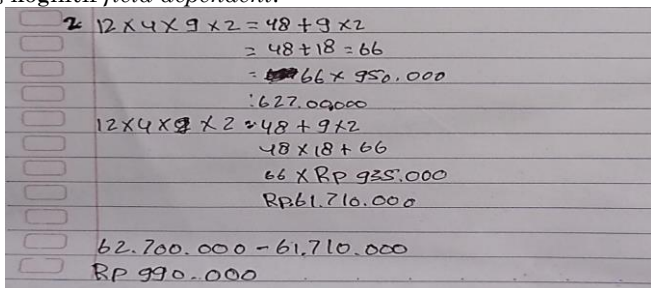 kognitif field dependent.
2 12 x 4 x 9 x 2 = 48 + 9 x 2
= 48 + 18 = 66
= 66 x 950.000
: 627.00000
12 x 4 x 9 x 2 = 48 + 9 x 2
48 x 18 + 66
66 x Rp 935.000
Rp.61.710.000
62.700.000 - 61.710.000
Rp 990.000